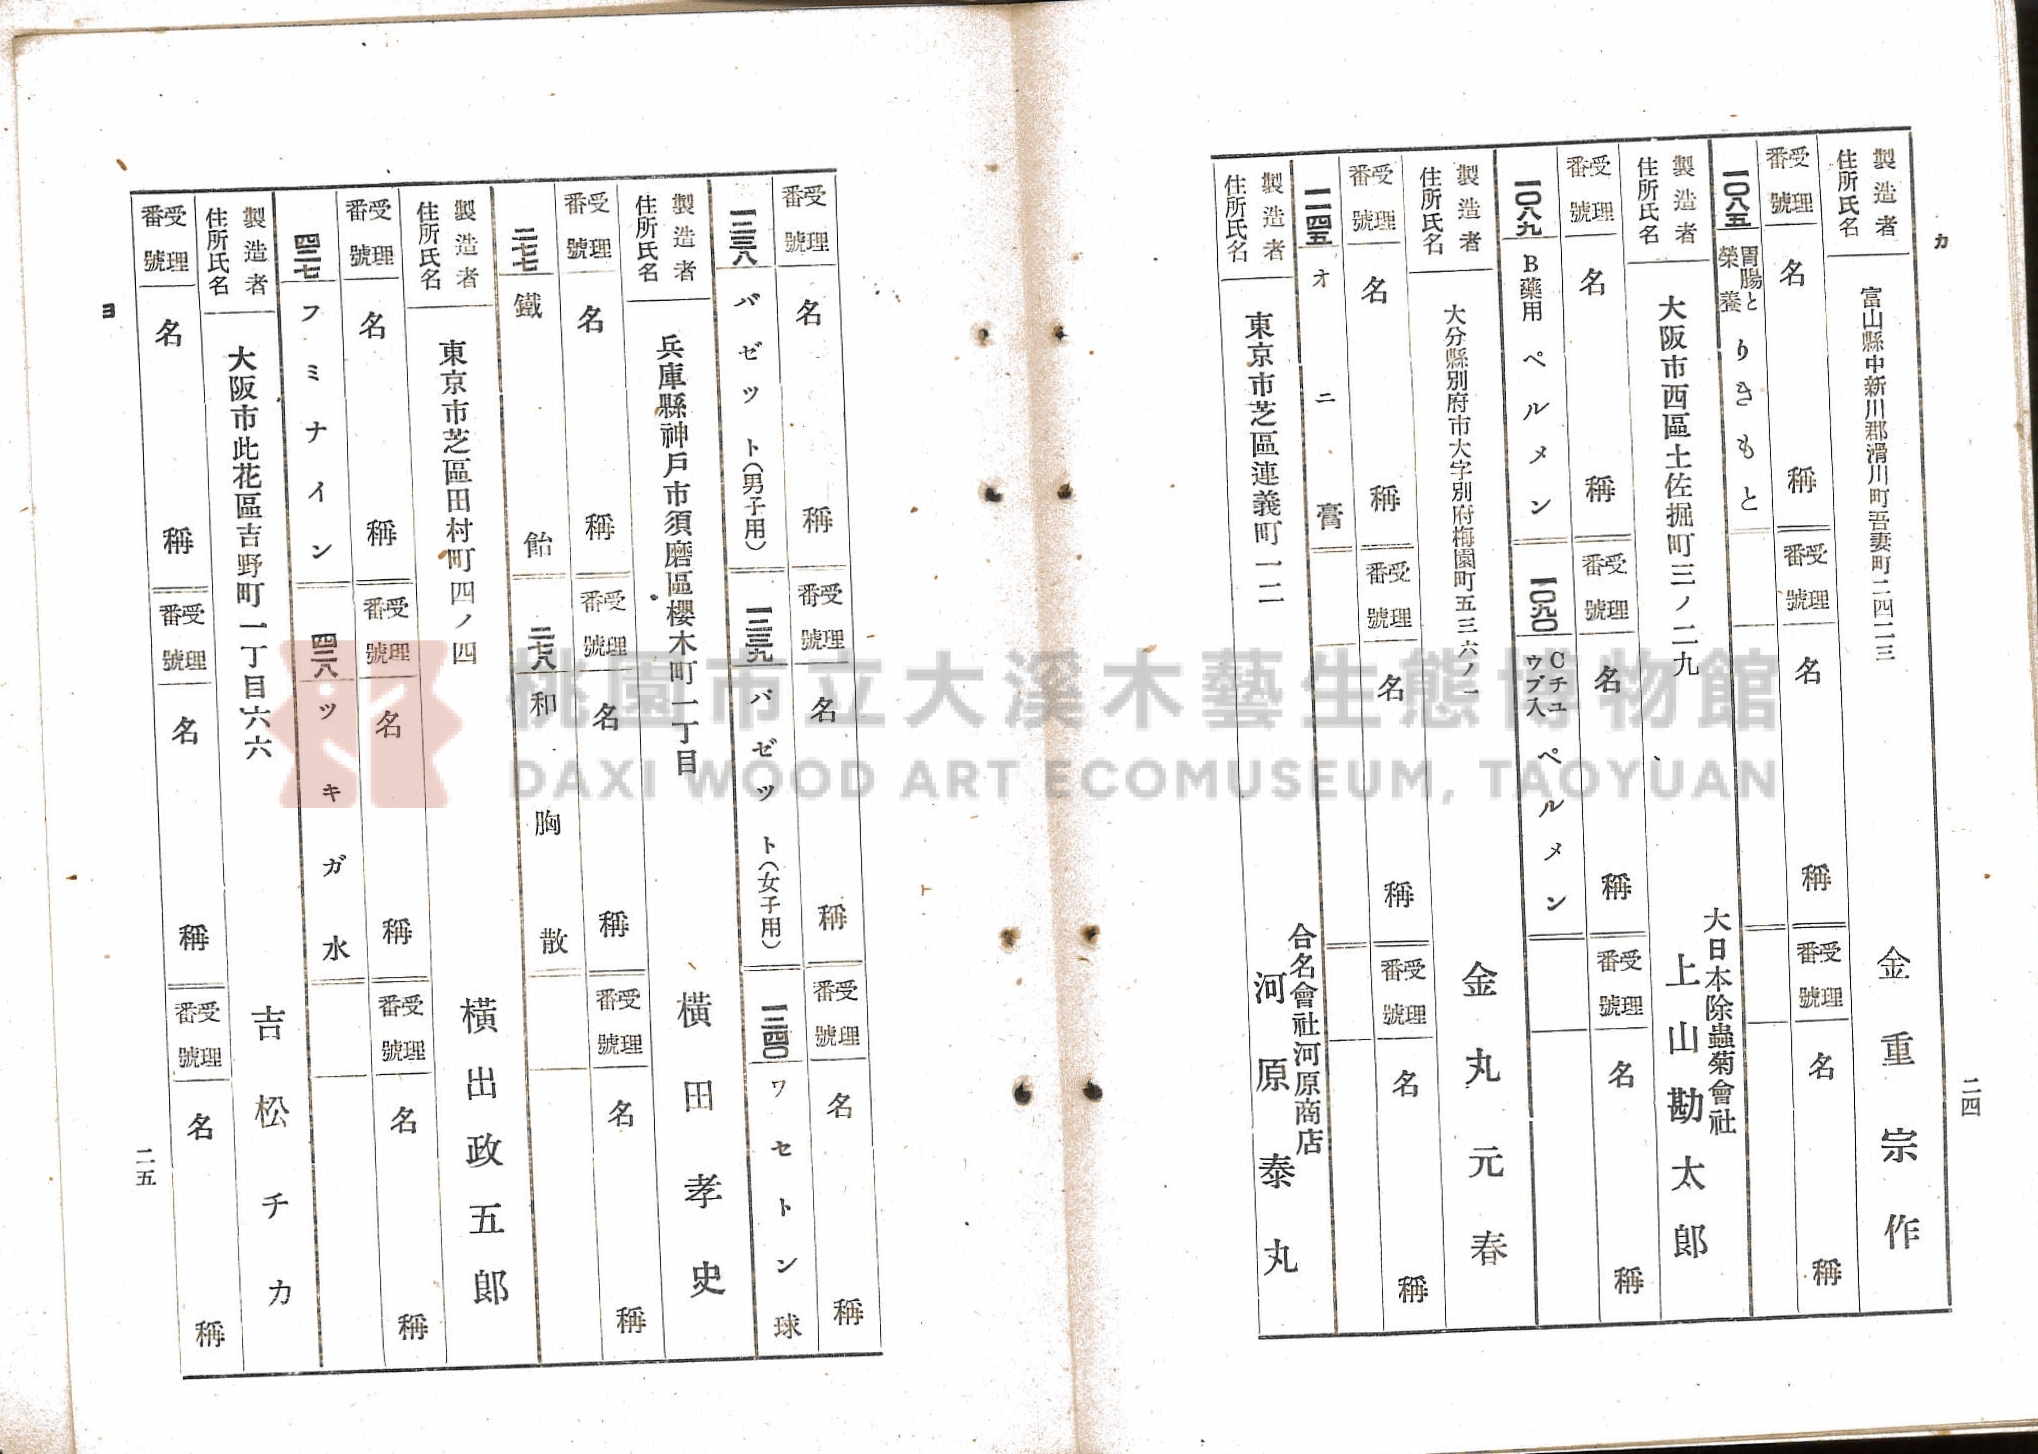 カ
製造者住所氏名
富山縣中新川郡滑川町吾妻町二四二三
金重宗作
受理番號 名稱 受理番號 名稱 受理番號 名稱
一〇八五 胃腸と榮養 りきもと
製造者住所氏名
大阪市西區土佐掘町三ノ二九
大日本除蟲菊會社
上山勘太郎
受理番號 名稱 受理番號 名稱 受理番號 名稱
一〇八九 B藥用 ペルメン 一〇九〇 Cチユウブ入 ペルメン
製造者住所氏名
大分縣別府市大字別府梅園町五三六ノ一
金丸元春
受理番號 名稱 受理番號 名稱 受理番號 名稱
一一四五 オニ膏
製造者住所氏名
東京市芝區連義町一二
合名會社河原商店
河原泰丸
二四
受理番號 名稱 受理番號 名稱 受理番號 名稱
一三三八 バゼツト(男子用) 一三三九 バゼツト(女子用) 一三四〇 ワセトン球
製造者住所氏名
兵庫縣神戶市須磨區櫻木町一丁目
橫田孝史
受理番號 名稱 受理番號 名稱 受理番號 名稱
二七七 鐵飴 二七八 和胸散
製造者住所氏名
東京市芝區田村町四ノ四
橫出政五郎
受理番號 名稱 受理番號 名稱 受理番號 名稱
四二七 フミナイン 四二八 ツキガ水
製造者住所氏名
大阪市此花區吉野町一丁目六六
吉松チカ
受理番號 名稱 受理番號 名稱 受理番號 名稱
ヨ
二五
桃園市立大溪木藝生態博物館
DAXI WOOD ART ECOMUSEUM, TAOYUAN